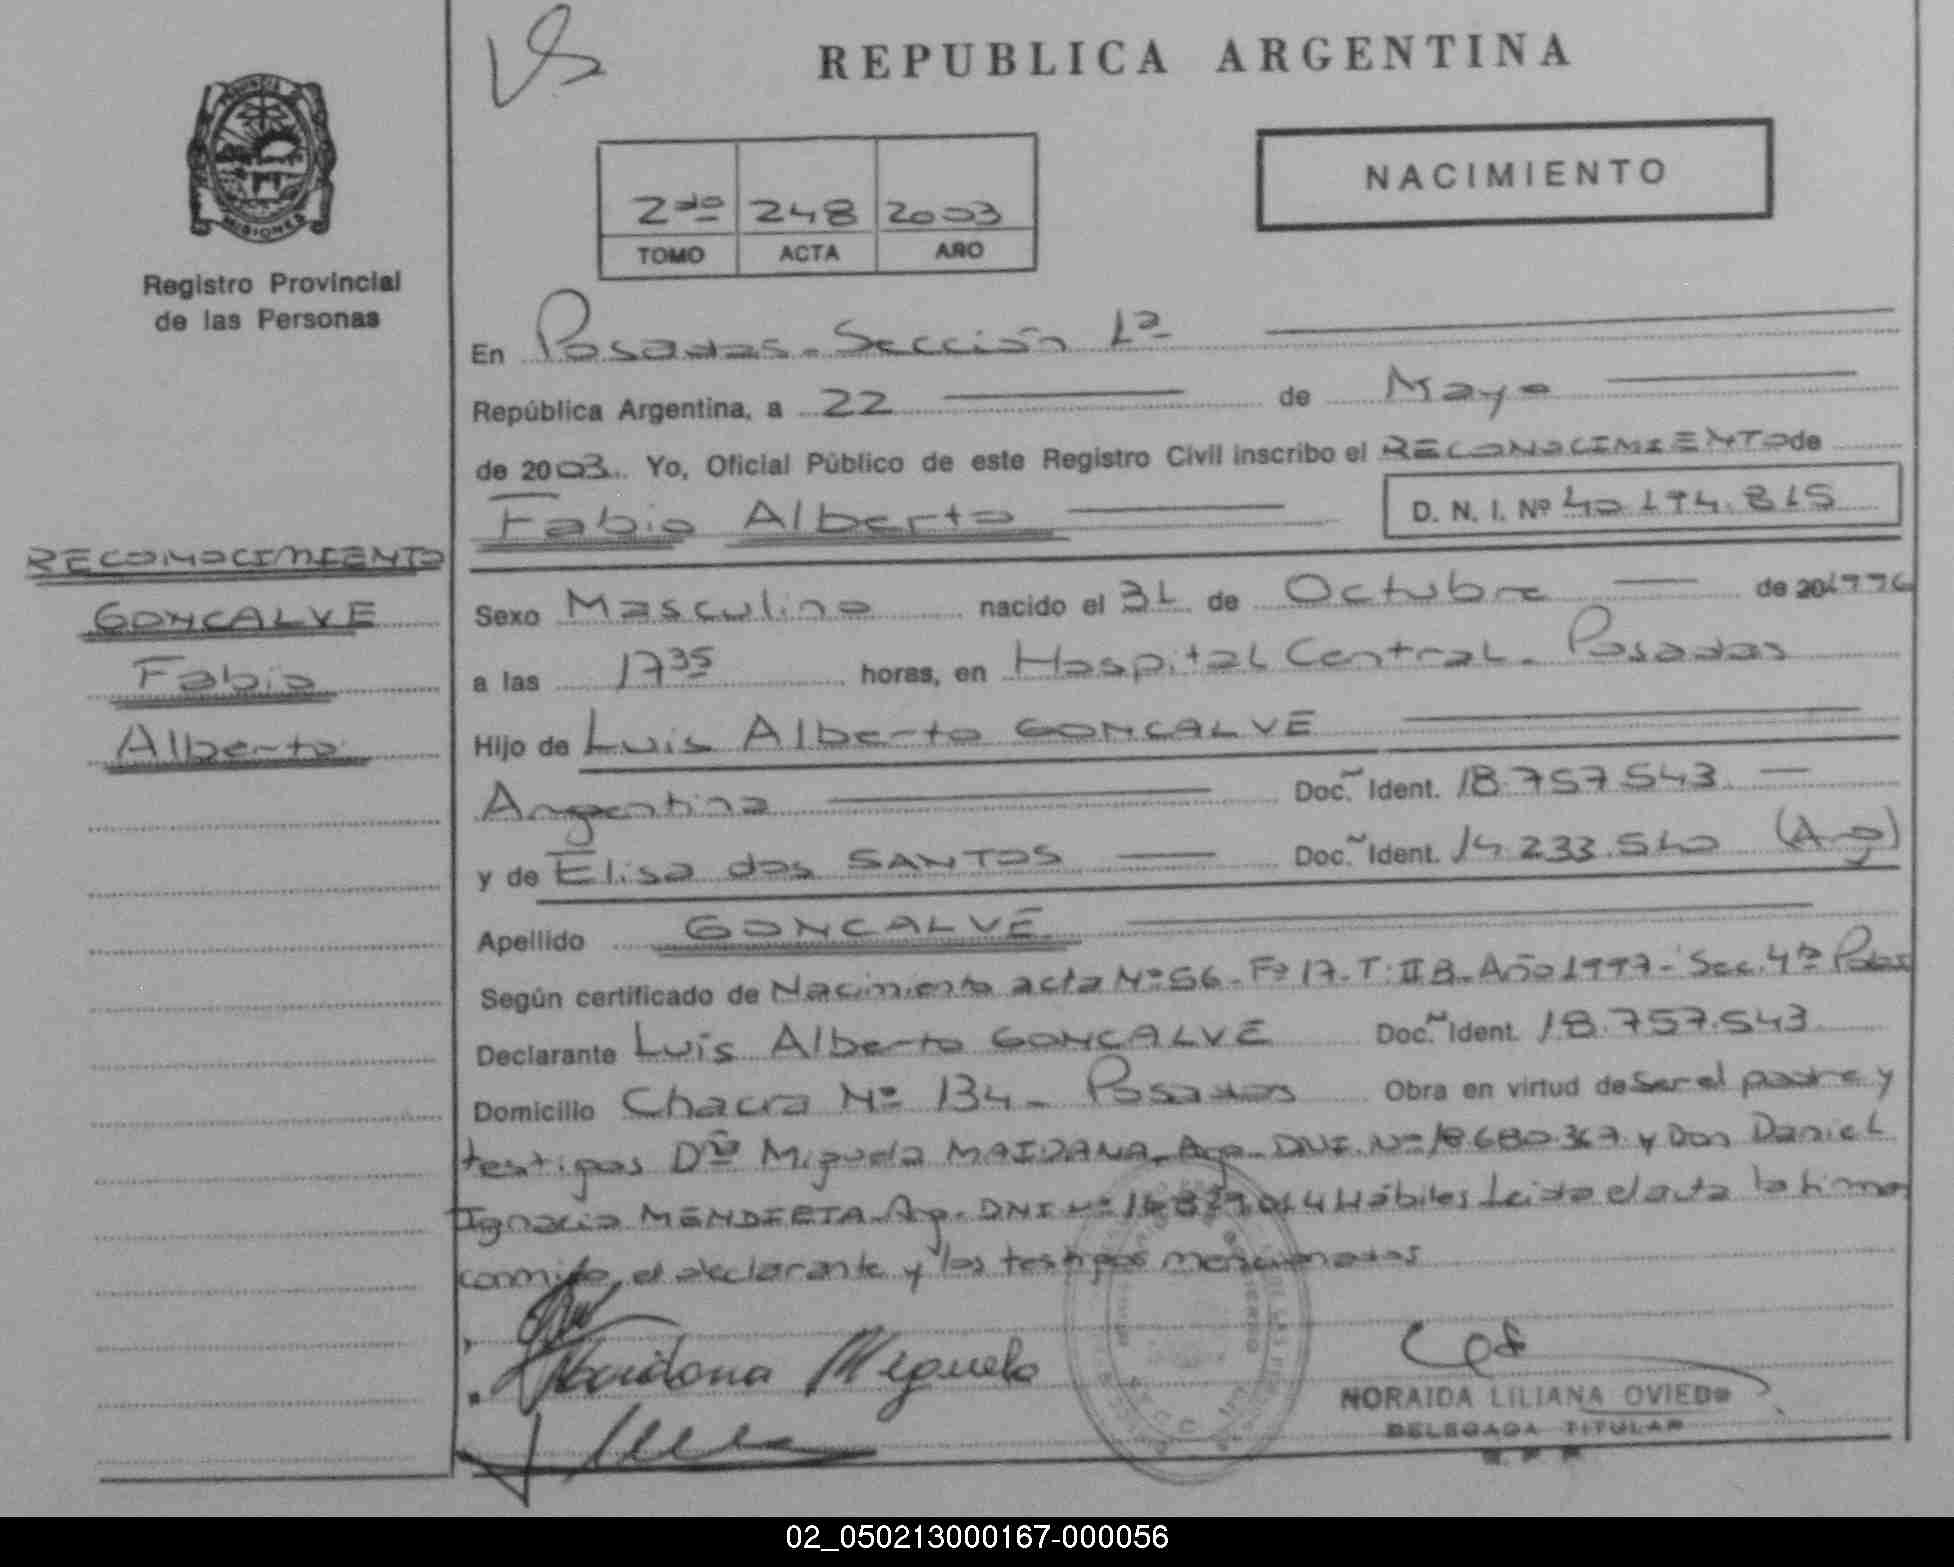 REPUBLICA ARGENTINA
NACIMIENTO
2do 248 2003
TOMO ACTA AÑO
MISIONES
Registro Provincial
de las Personas
En Posadas - Sección 1ª
República Argentina, a 22 de Mayo
de 2003. Yo, Oficial Público de este Registro Civil inscribo el RECONOCIMIENTO de
Fabio Alberto D. N. I. Nº 40.194.815
RECONOCIMIENTO
GONCALVE
Fabio
Alberto
Sexo Masculino nacido el 31 de Octubre de 201996
a las 17 35 horas, en Hospital Central - Posadas
Hijo de Luis Alberto GONCALVE
Argentina Doc. Ident. 18.757.543
y de Elisa dos SANTOS Doc. Ident. 14.233.540 (Arg)
Apellido GONCALVE
Según certificado de Nacimiento acta Nº 56 - Fº 17 - T: II B - Año 1997 - Sec. 4ª Pdas
Declarante Luis Alberto GONCALVE Doc. Ident. 18.757.543
Domicilio Chacra Nº 134 - Posadas Obra en virtud de ser el padre y
testigos Dña Miguela MAIDANA - Arg - DNI. Nº 18.680.367 y Don Daniel
Ignacio MENDIETA - Arg. DNI Nº Hábiles Leida el acta la firma
conmigo, el declarante y los testigos mencionados
Maidana Miguela
NORAIDA LILIANA OVIEDO
DELEGADA TITULAR
02_050213000167-000056